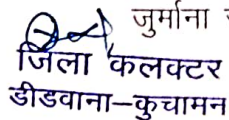 जुर्माना
जिला कलक्टर
डीडवाना–कुचामन